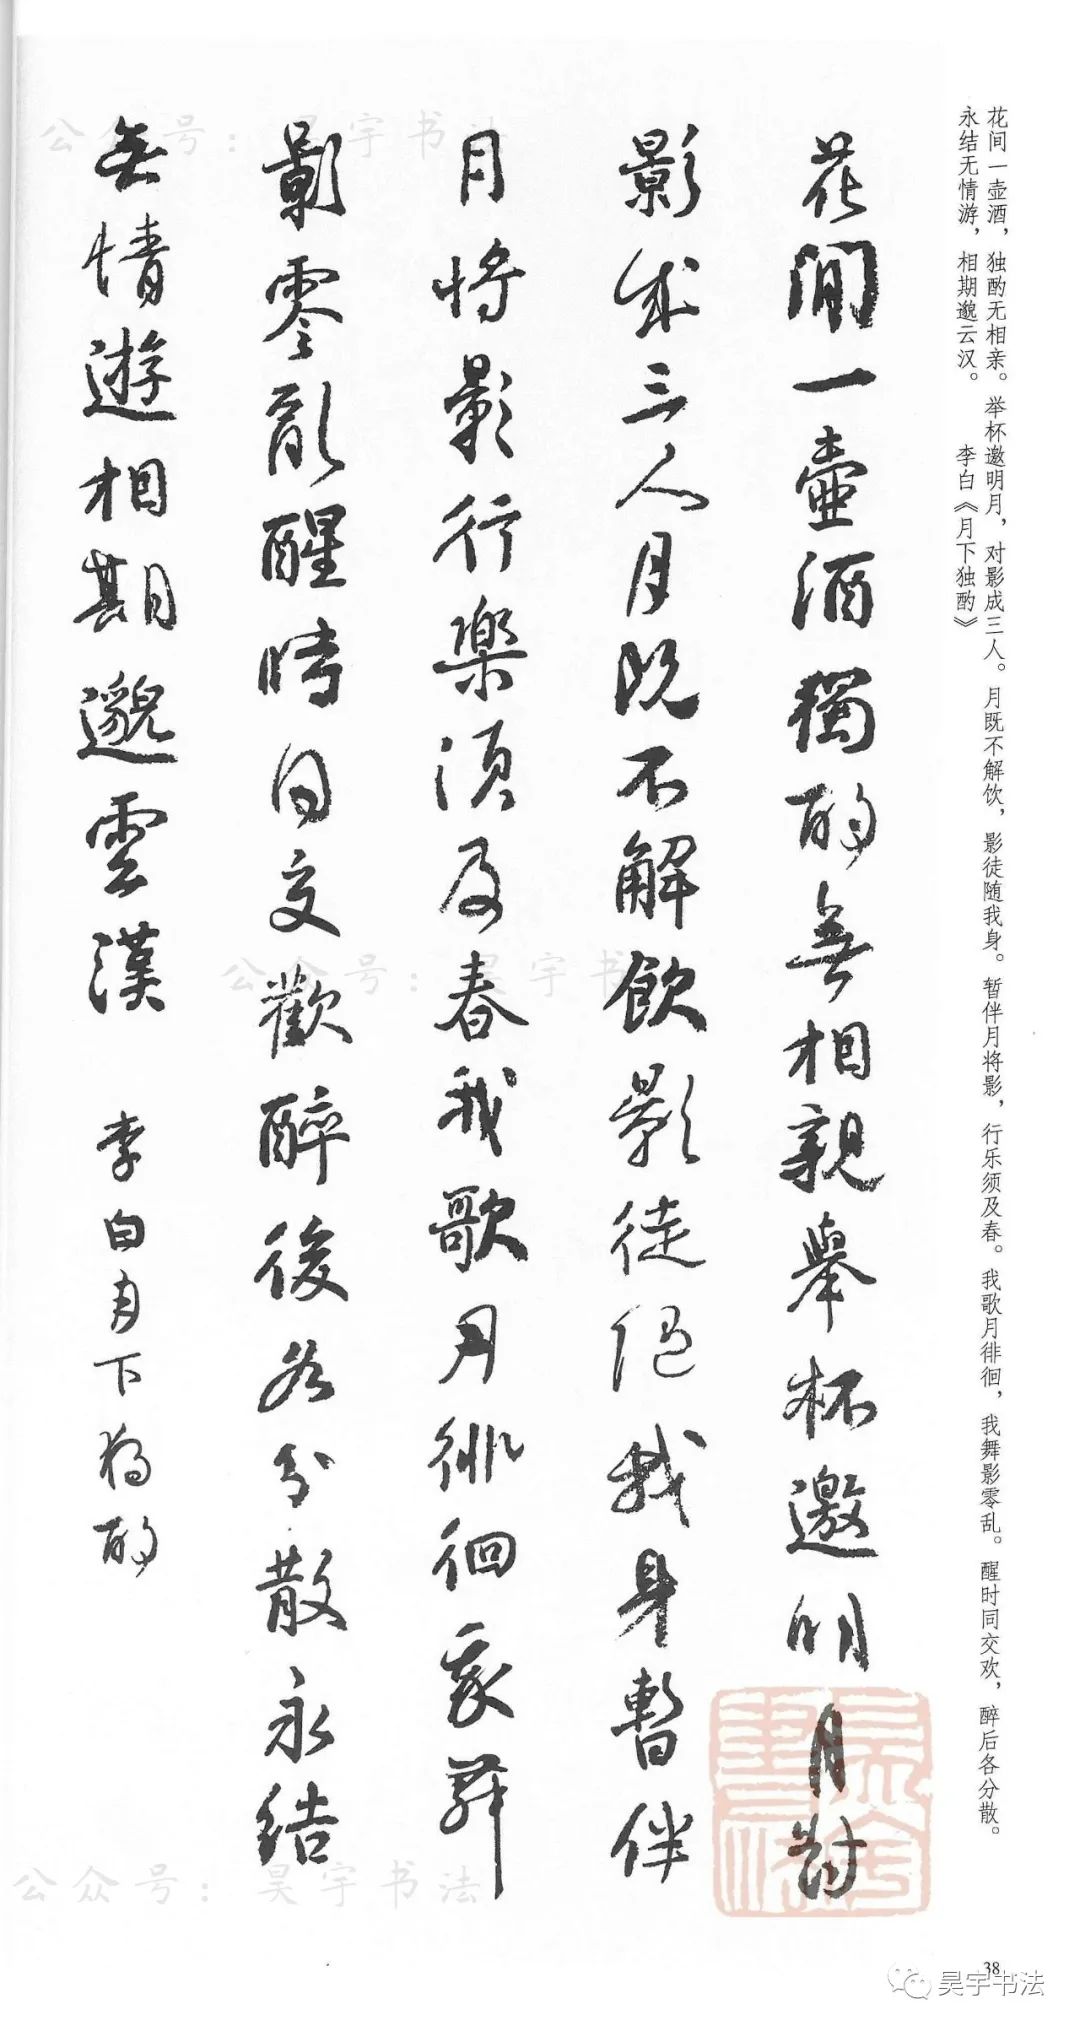 花间一壶酒，独酌无相亲。举杯邀明月，对影成三人。月既不解饮，影徒随我身。暂伴月将影，行乐须及春。我歌月徘徊，我舞影零乱。醒时同交欢，醉后各分散。
永结无情游，相期邈云汉。 李白《月下独酌》
花間一壺酒獨酌無相親舉杯邀明月對
影成三人月既不解飲影徒隨我身暫伴
月將影行樂須及春我歌月徘徊我舞
影零亂醒時同交歡醉後各分散永結
無情遊相期邈雲漢 李白月下獨酌
公众号：昊宇书法
公众号：昊宇书
公众号：昊宇书法
38
昊宇书法